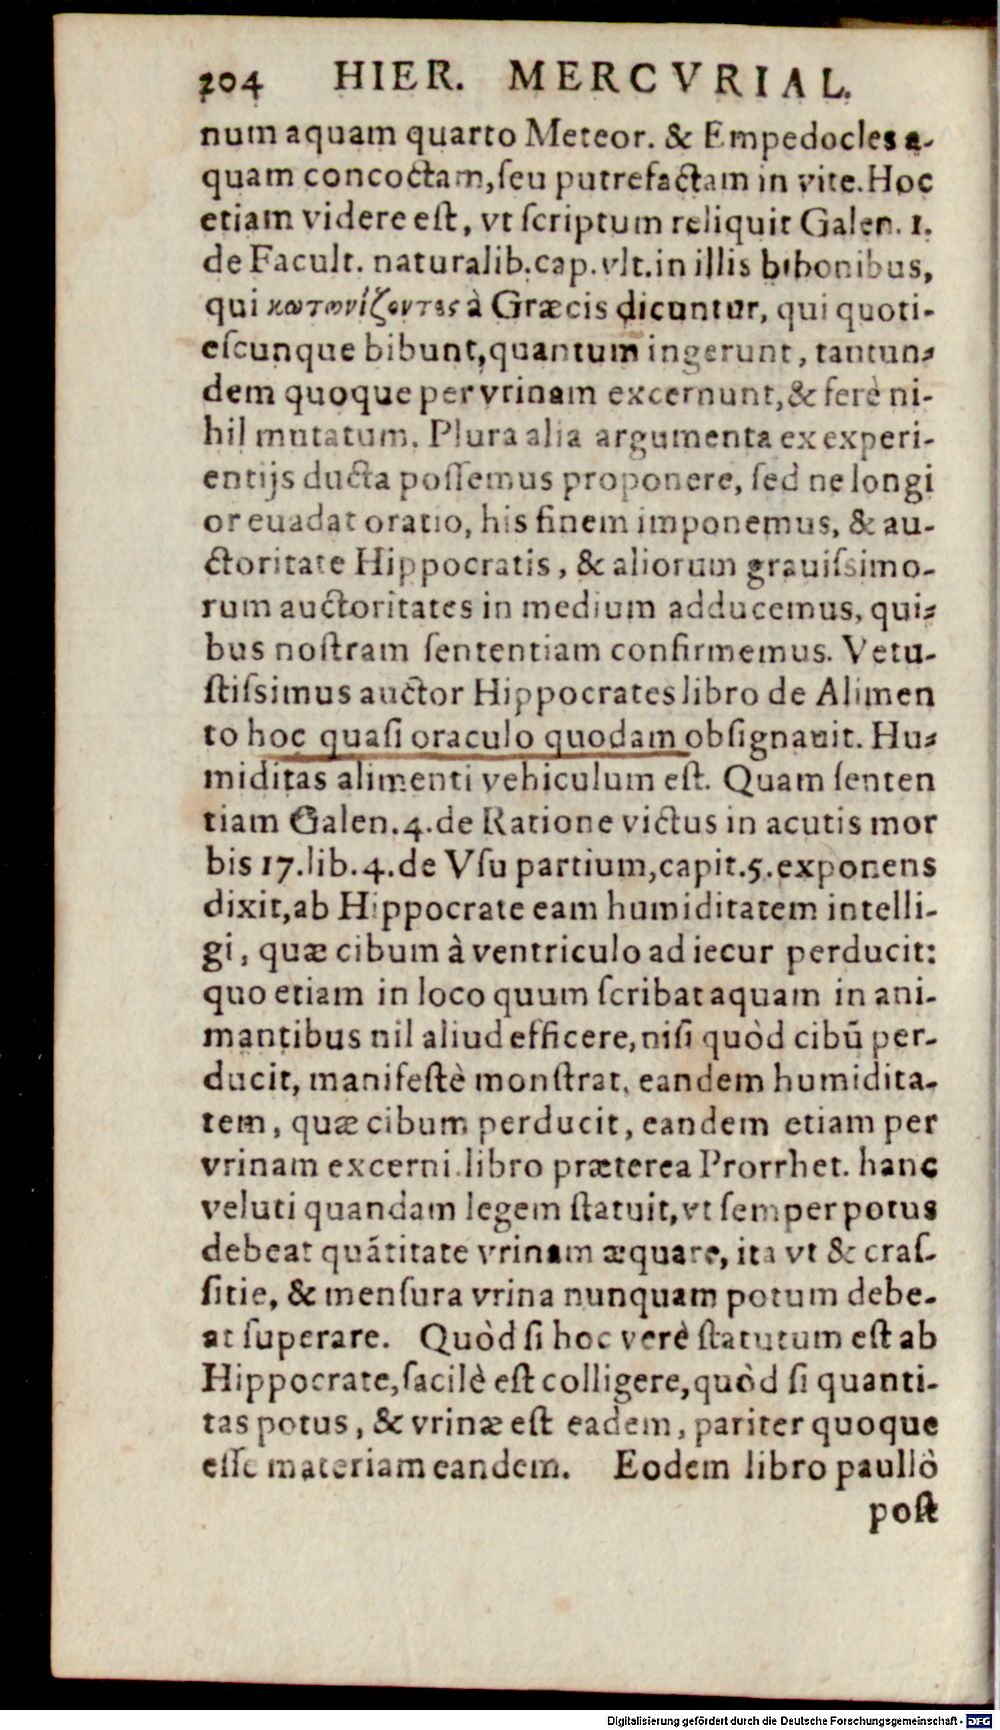 204 HIER. MERCVRIAL.
num aquam quarto Meteor. & Empedocles a-
quam concoctam, ſeu putrefactam in vite. Hoc
etiam videre eſt, vt ſcriptum reliquit Galen. 1.
de Facult. naturalib. cap. vlt. in illis bibonibus,
qui κωτωνίζοντες à Græcis dicuntur, qui quoti-
eſcunque bibunt, quantum ingerunt, tantun-
dem quoque per vrinam excernunt, & ferè ni-
hil mutatum. Plura alia argumenta ex experi-
entijs ducta poſſemus proponere, ſed ne longi
or euadat oratio, his finem imponemus, & au-
ctoritate Hippocratis, & aliorum grauiſsimo-
rum auctoritates in medium adducemus, qui-
bus noſtram ſententiam confirmemus. Vetu-
ſtiſsimus auctor Hippocrates libro de Alimen
to hoc quaſi oraculo quodam obſignauit. Hu-
miditas alimenti vehiculum eſt. Quam ſenten
tiam Galen. 4. de Ratione victus in acutis mor
bis 17. lib. 4. de Vſu partium, capit. 5. exponens
dixit, ab Hippocrate eam humiditatem intelli-
gi, quæ cibum à ventriculo ad iecur perducit:
quo etiam in loco quum ſcribat aquam in ani-
mantibus nil aliud efficere, niſi quòd cibū per-
ducit, manifeſtè monſtrat, eandem humidita-
tem, quæ cibum perducit, eandem etiam per
vrinam excerni. libro præterea Prorrhet. hanc
veluti quandam legem ſtatuit, vt ſemper potus
debeat quātitate vrinam æquare, ita vt & craſ-
ſitie, & menſura vrina nunquam potum debe-
at ſuperare. Quòd ſi hoc verè ſtatutum eſt ab
Hippocrate, facilè eſt colligere, quòd ſi quanti-
tas potus, & vrinæ eſt eadem, pariter quoque
eſſe materiam eandem. Eodem libro paullò
poſt
Digitalisierung gefördert durch die Deutsche Forschungsgemeinschaft - DFG